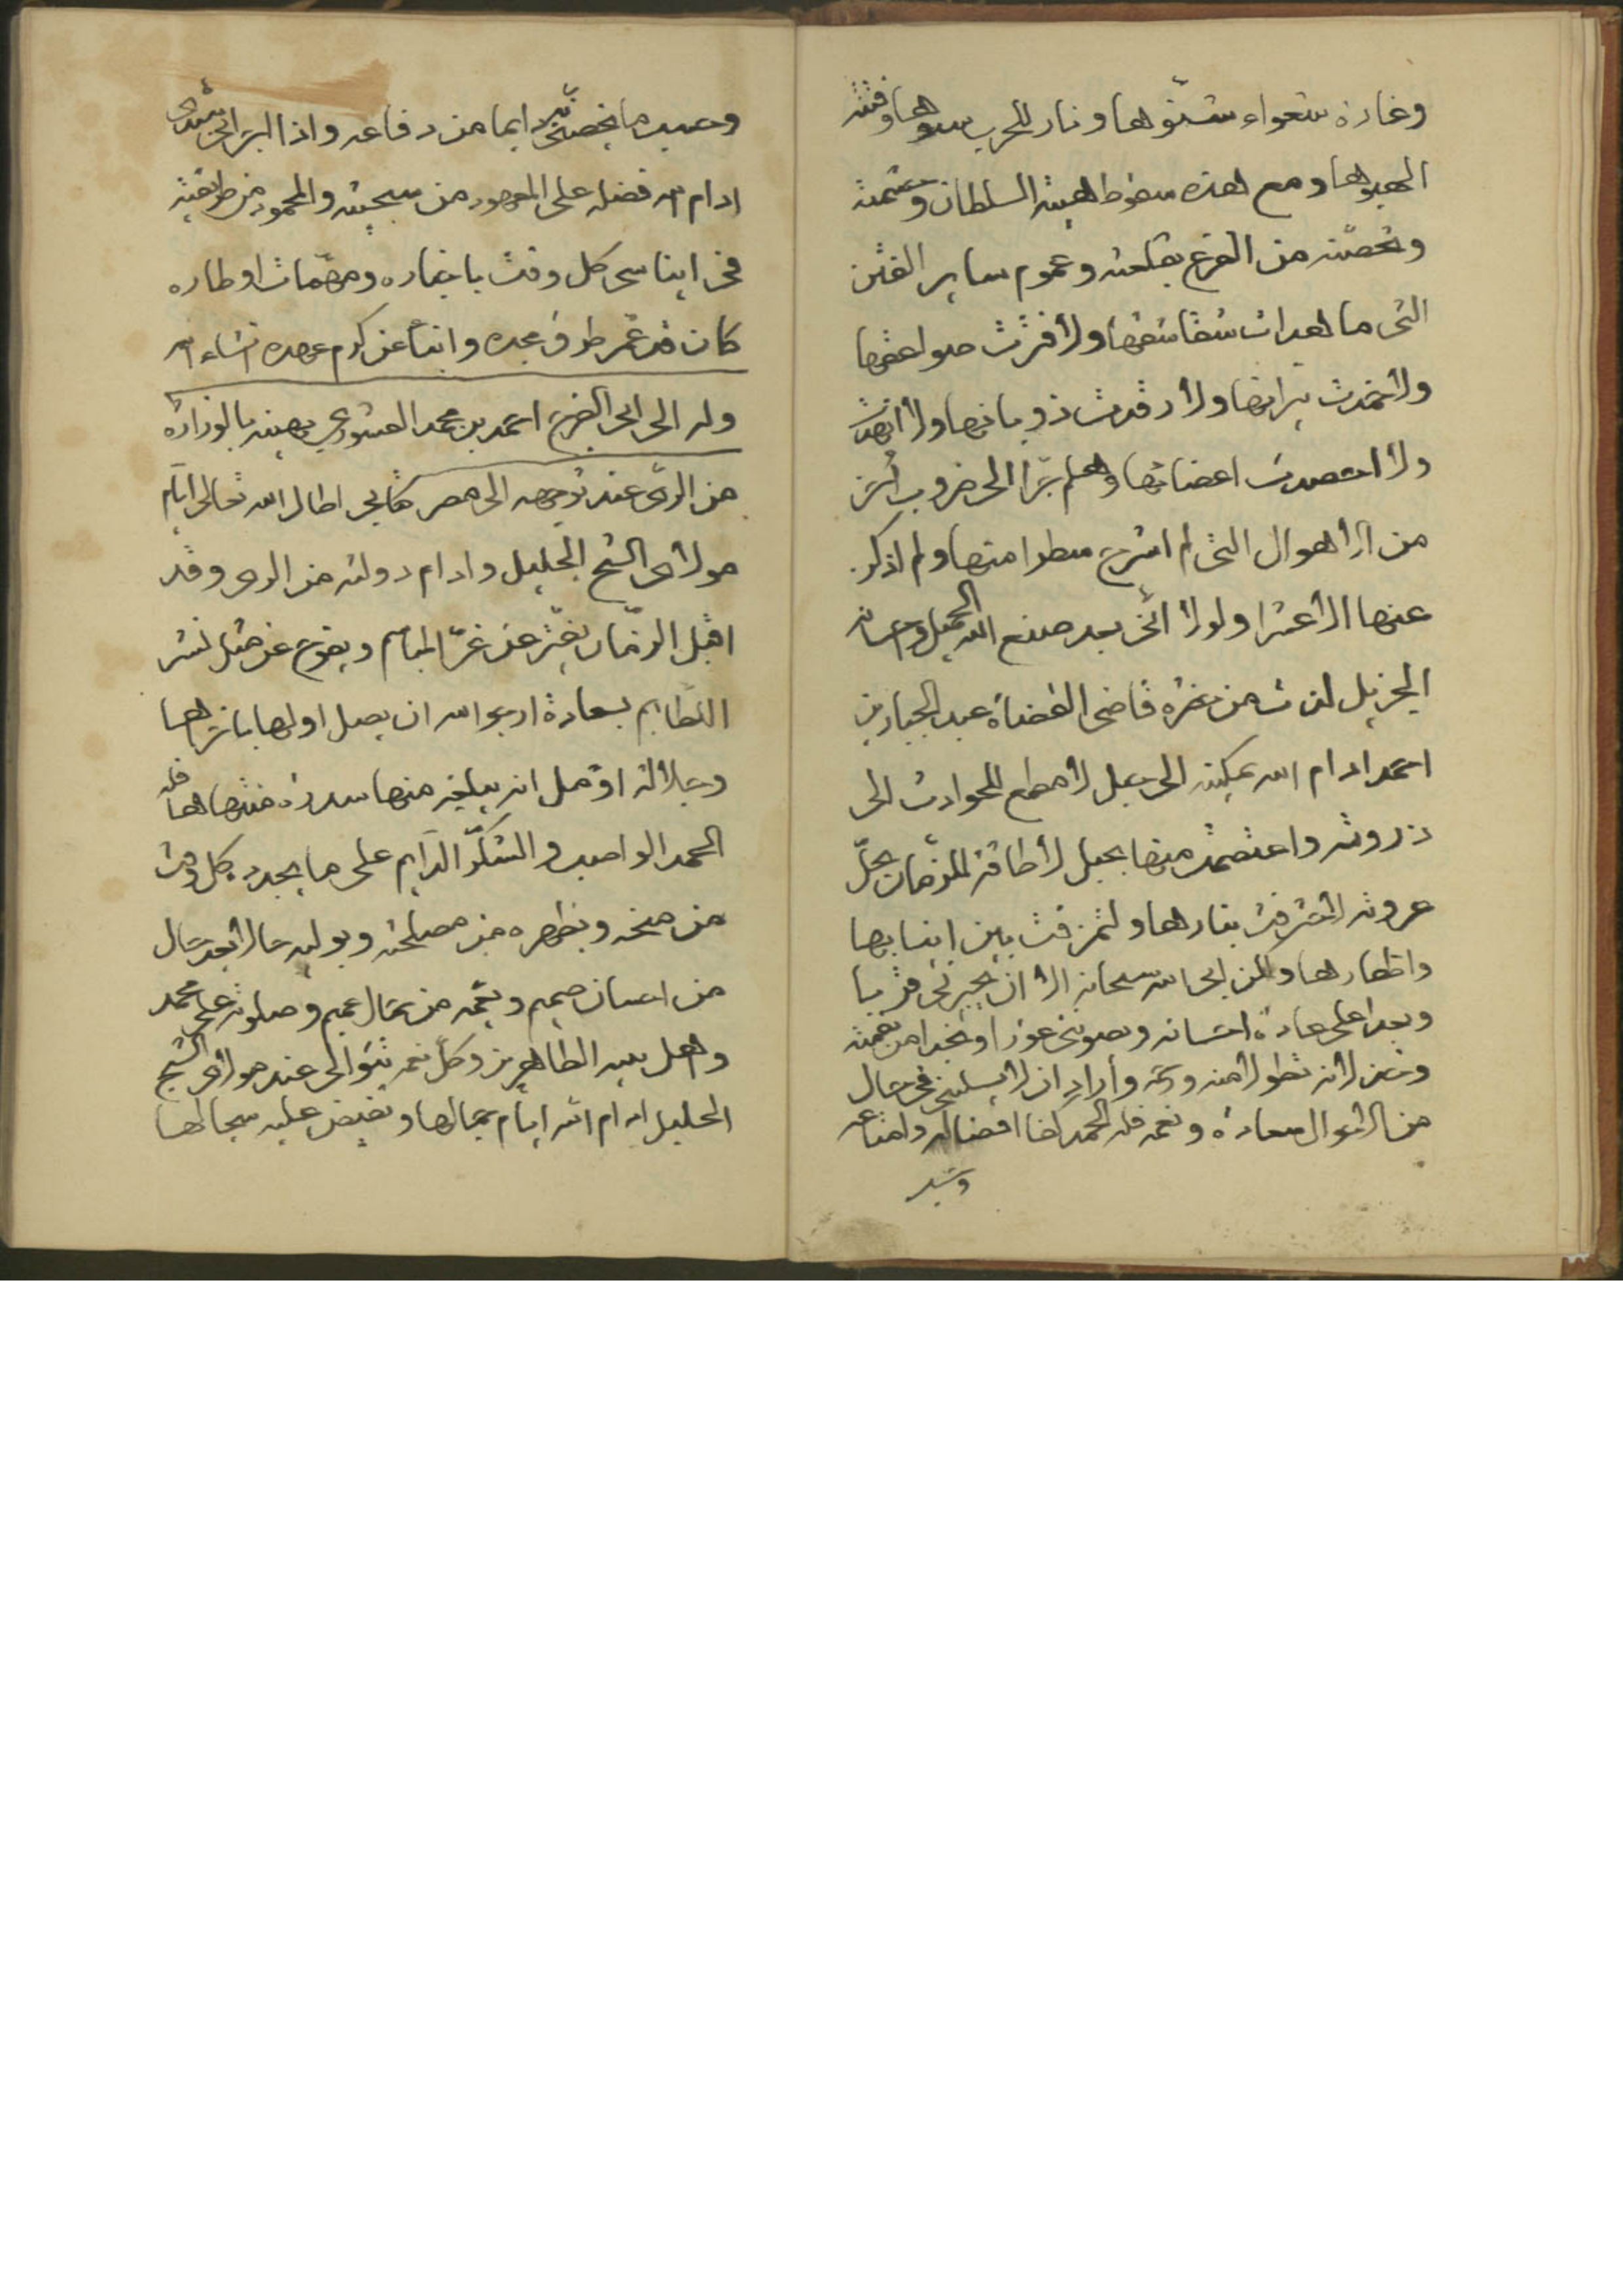 وغارة شعواء شنوها ونار للحرب وفتنة
الهبوها ومع هذه سقوط هيبة السلطان وحشمته
وتحصنه من الفزع بقلعته وعموم ساير الفتن
التى ما هدات شقاشقها ولا فترت صواعقها
ولا خمدت نيرانها ولا رقدت ذوبانها ولا
ولا اعضاتها وهلم جرا الى ضروب اخر
من الاهوال التى لم اشرح سطرا منها ولم اذكر
عنها الا عشرا ولولا اننى بعد صنع الله الجميل
الجزيل لذت من قاضى القضاة عبد الجبار بن
احمد ادام الله تمكينه الى جبل لا مطمع للحوادث الى
ذروته واعتصمت منها بحبل لا طاقة للزمان بحل
عروته لاحترقت بنارها ولتمزقت بين انيابها
واظفارها ولكن ابى الله سبحانه الا ان يجيرنى قربا
وبعدا على عادة احسانه ويصوننى غورا ونجدا من نعمته
لا منه وأراد ان لا يسلبنى فى حال
من الاحوال سعادة ونعمة فله الحمد كفا افضاله وامتاعه
وحسب
وحسب ما يخصنى دايما من دفاعه واذا
ادام الله فضله على المعهود من سجيته والمحمود من طريقته
فى ايناسى كل وقت باخباره ومهمات اوطاره
كان قد عمر طرق مجده وانبأ عن كرم عهده انشاء الله
وله الى ابى الفرج احمد بن محمد يهنيه بالوزارة
من الرى عند توجهه الى مصر كتابى اطال الله تعالى ايام
مولاى الشيخ الجليل وادام دولته من الرى وقد
اقبل الزمان يفتر عن غر المباسم ويضوع عن مثل نشر
اللطايم بسعادة ارجو الله ان يصل اولها باخرها
وجلالة اؤمل ان يبلغه منها سدرة منتهاها فله
الحمد الواصب والشكر الدايم على ما يجدده كل وقت
من منحه ويظهره من مصلحته ويوليه حالا بعد حال
من احسان صميم ويعمه من عميم وصلوته على محمد
واهل بيته الطاهرين وكل نعمة تتوالى عند مولاى الشيخ
الجليل ادام الله ايام جمالها ويفيض عليه سجالها